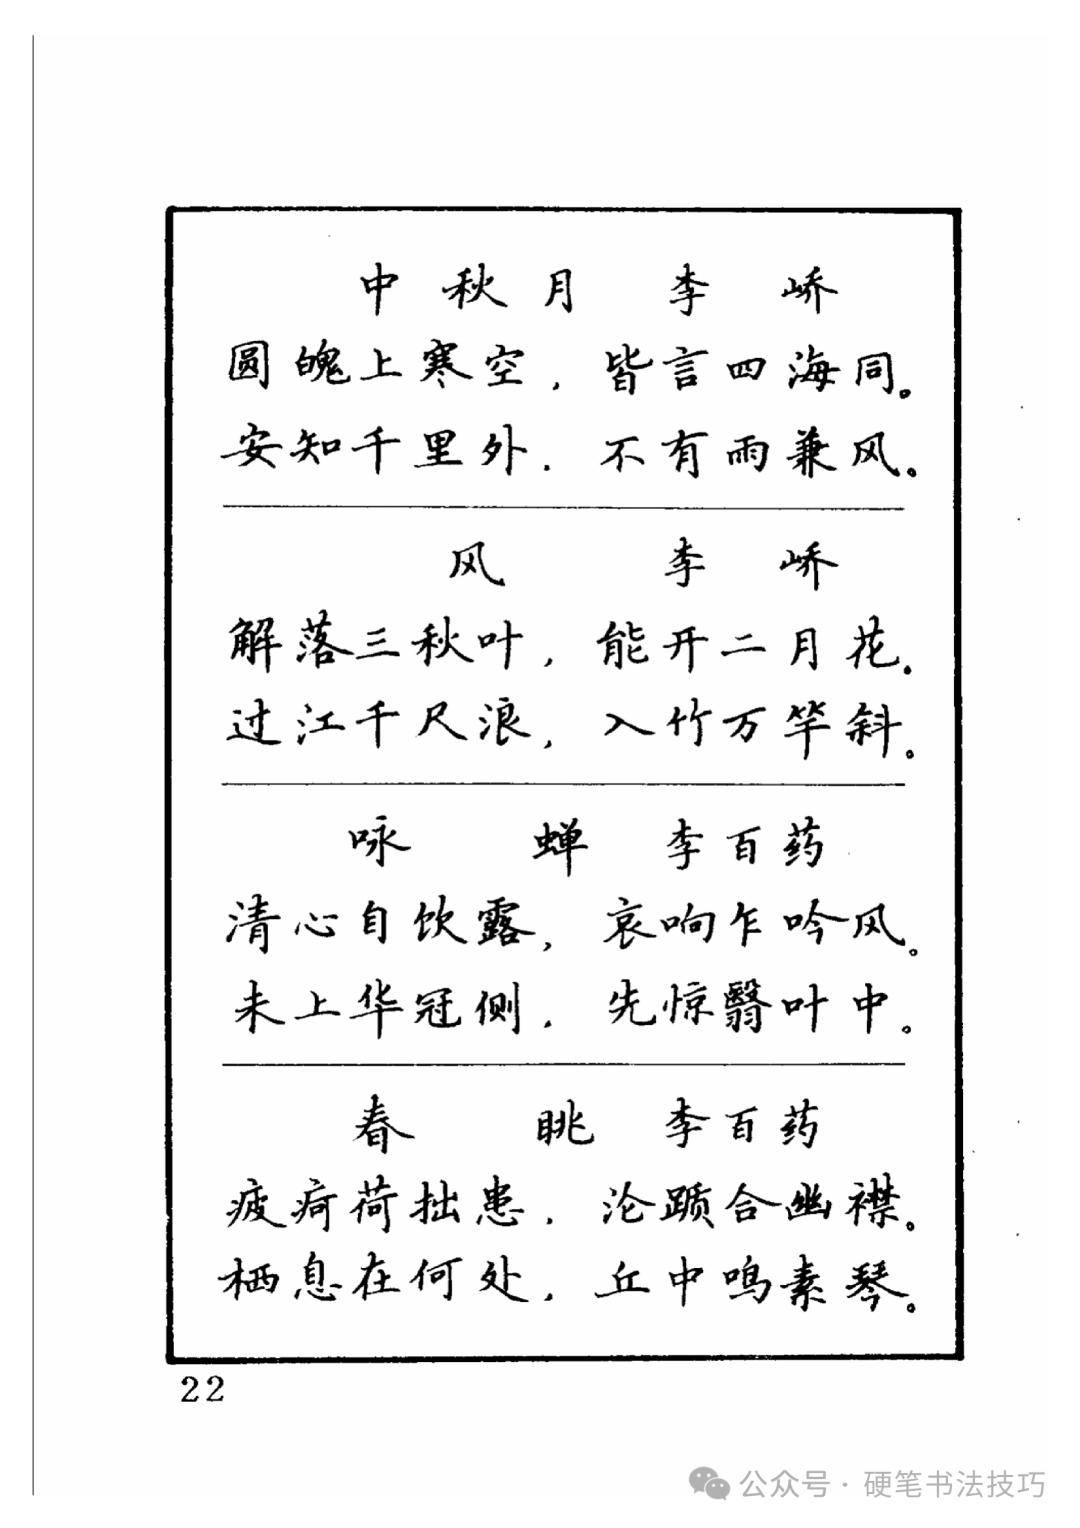 中秋月 李峤
圆魄上寒空，皆言四海同。
安知千里外，不有雨兼风。
风 李峤
解落三秋叶，能开二月花。
过江千尺浪，入竹万竿斜。
咏蝉 李百药
清心自饮露，哀响乍吟风。
未上华冠侧，先惊翳叶中。
春眺 李百药
疲疴荷拙患，沦踬合幽襟。
栖息在何处，丘中鸣素琴。
22
公众号·硬笔书法技巧